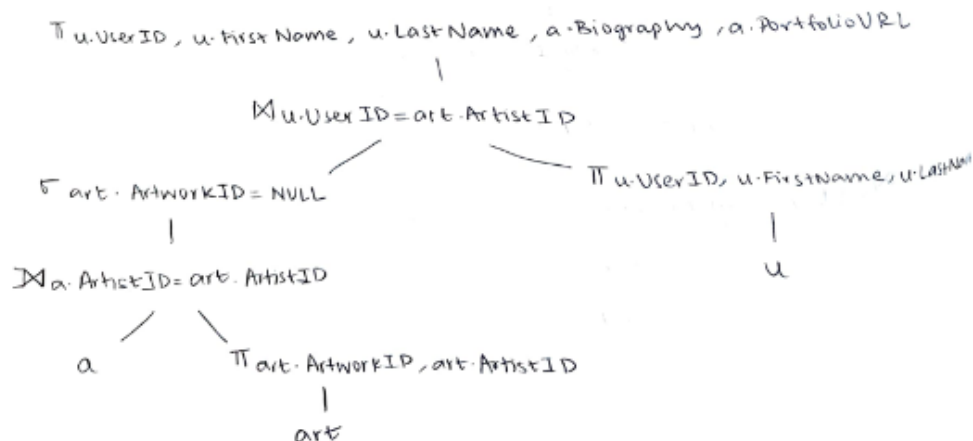 π u.UserID, u.FirstName, u.LastName, a.Biography, a.PortfolioURL
⋈ u.UserID = art.ArtistID
σ art.ArtworkID = NULL
π u.UserID, u.FirstName, u.LastName
u
⟕ a.ArtistID = art.ArtistID
a
π art.ArtworkID, art.ArtistID
art